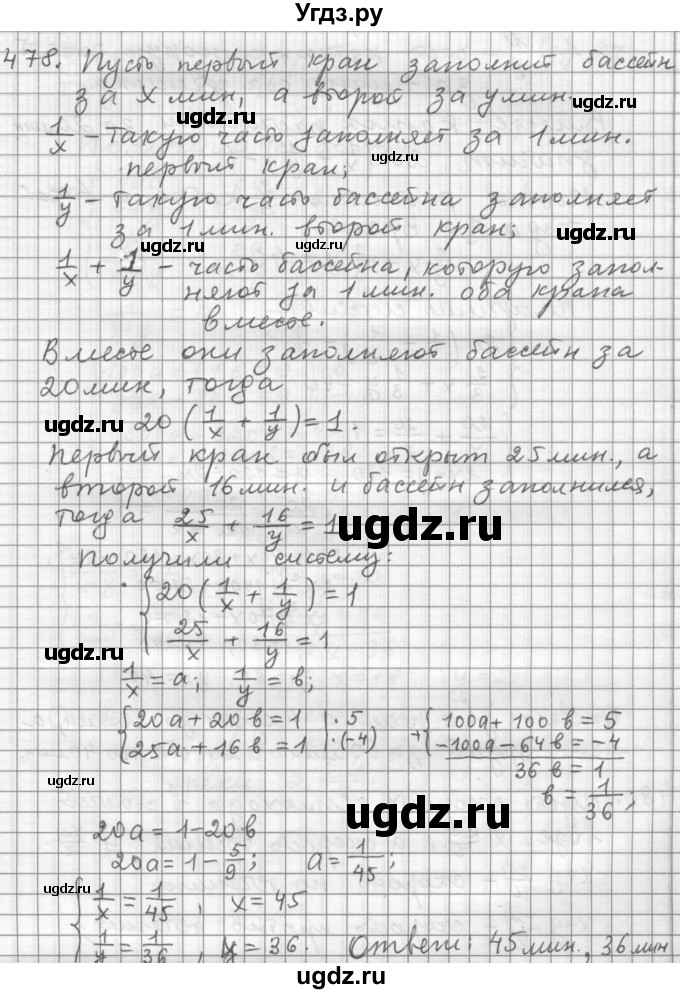 Угдз.ру
478. Пусть первый кран заполнит бассейн
за x мин, а второй за y мин.
ugdz.ru ugdz.ru
1/x - такую часть заполняет за 1 мин.
первый кран;
ugdz.ru
1/y - такую часть бассейна заполняет
за 1 мин. второй кран;
ugdz.ru ugdz.ru
1/x + 1/y - часть бассейна, которую запол-
няют за 1 мин. оба крана
вместе.
Вместе они заполняют бассейн за
20 мин, тогда
ugdz.ru
20 (1/x + 1/y) = 1.
ugdz.ru
Первый кран был открыт 25 мин., а
второй 16 мин. и бассейн заполнился,
тогда 25/x + 16/y = 1
ugdz.ru
Получили систему:
{ 20 (1/x + 1/y) = 1
25/x + 16/y = 1
ugdz.ru
1/x = a; 1/y = b;
{ 20a + 20b = 1 | · 5 + { 100a + 100b = 5
25a + 16b = 1 | · (-4) -100a - 64b = -4
36b = 1
b = 1/36;
ugdz.ru
20a = 1 - 20b
ugdz.ru
20a = 1 - 5/9; a = 1/45;
ugdz.ru
{ 1/x = 1/45, x = 45
1/y = 1/36, y = 36. Ответ: 45 мин., 36 мин
ugdz.ru
ugdz.ru